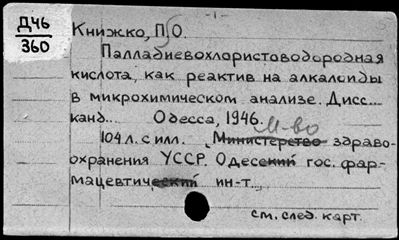 Д46
360
Книжко, П.О.
Палладиевохлористоводородная
кислота, как реактив на алкалоиды
в микрохимическом анализе. Дисс...
канд... Одесса, 1946.
М-во
104 л. с илл. Министерство здраво-
охранения УССР. Одесский гос. фар-
мацевтический ин-т.
см. след. карт.